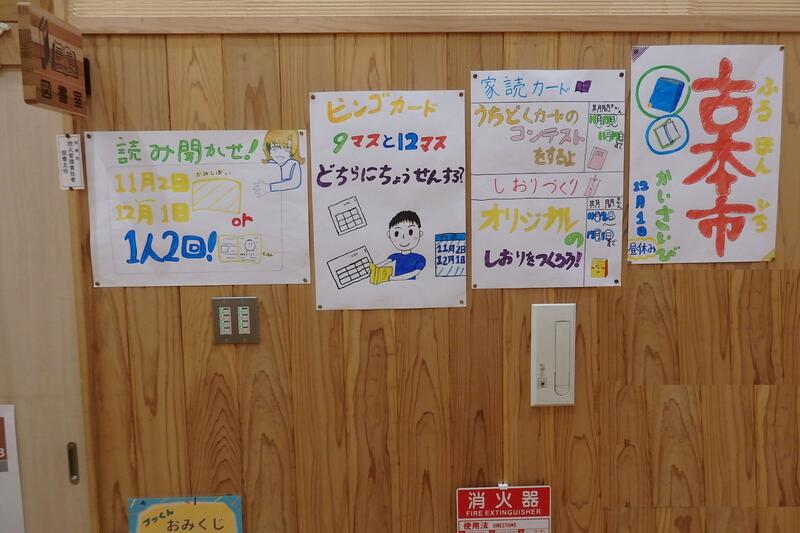 図書室
読み聞かせ!
かみしばい
11月2日
12月1日
or
1人2回!
ビンゴカード
9マスと12マス
どちらにちょうせんする?
11月2日
12月1日
家読カード
うちどくカードの
コンテスト
をするよ
しおりづくり
オリジナル
の
しおりをつくろう!
古本市
ふるほんいち
かいさいび
12月1日
昼休み
ブックん
おみくじ
消火器
FIRE EXTINGUISHER
使用法 DIRECTIONS